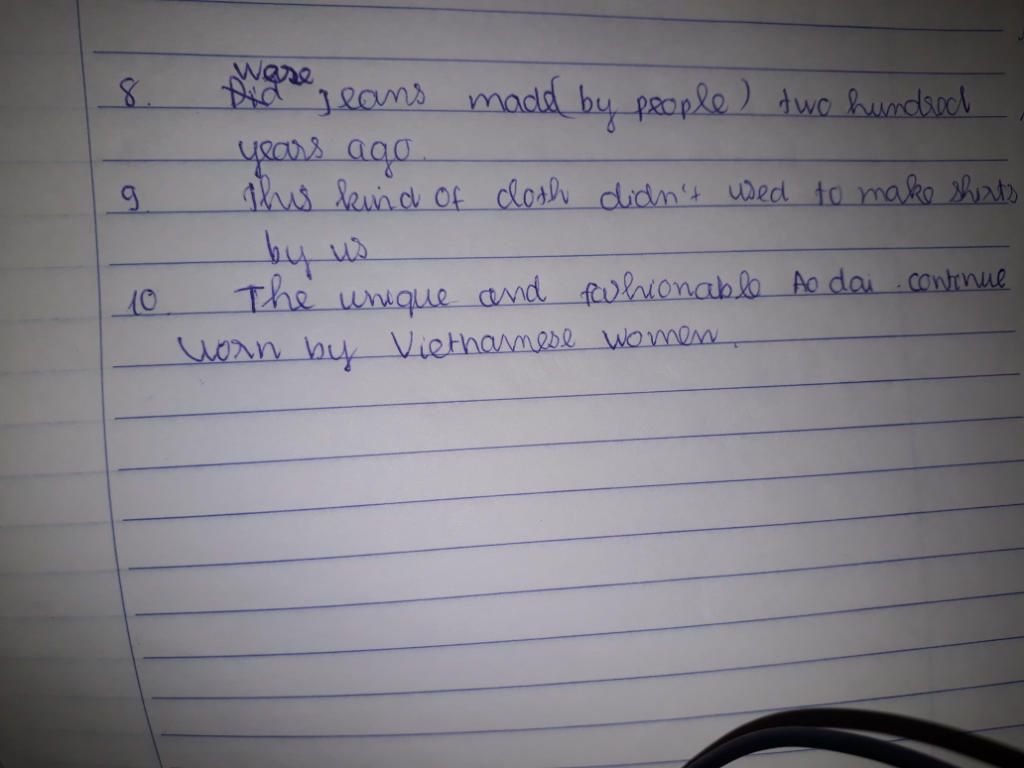 Were
8. Did jeans made (by people) two hundred
years ago.
9 This kind of cloth didn't used to make shirts
by us
10 The unique and fashionable Ao dai continue
worn by Vietnamese women.